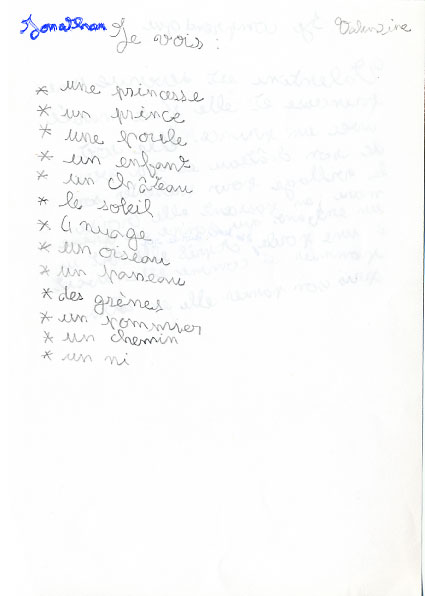 Jonathan
Je vois :
Valentine
* une princesse
* un prince
* une poule
* un enfant
* un château
* le soleil
* 4 nuage
* un oiseau
* un panneau
* des grènes
* un pommier
* un chemin
* un ni